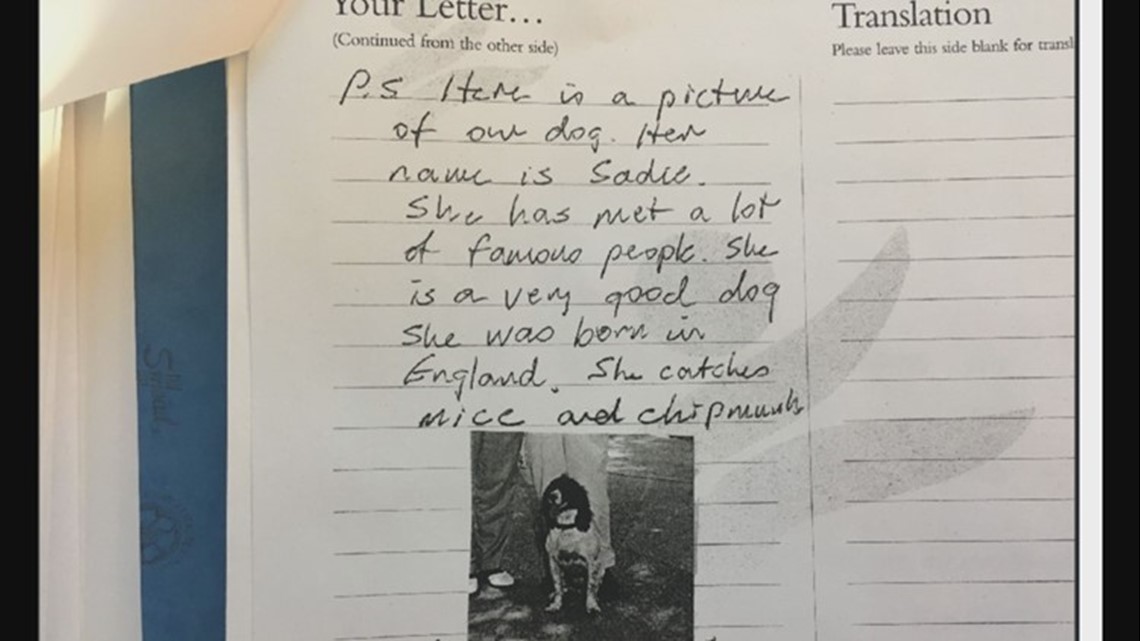 Your Letter…
(Continued from the other side)
P.S Here is a picture
of our dog. Her
name is Sadie.
She has met a lot
of famous people. She
is a very good dog
She was born in
England. She catches
mice and chipmunks
Translation
Please leave this side blank for transl